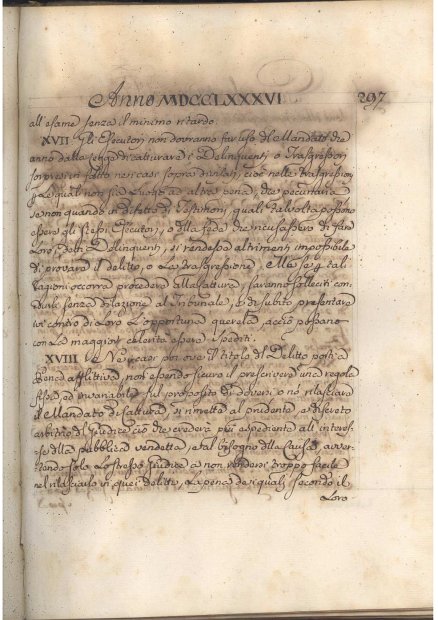 Anno MDCCLXXXVI 297
all'esame senza il minimo ritardo.
XVII Gli Esecutori non dovranno far uso del Mandato che
anno dalla Legge di catturare i Delinquenti, o Trasgressori
sorpresi in fatto nei casi sopra divisati, cioè nelle trasgressioni
Le quali non sia Luogo ad altra pena, che pecuniaria
se non quando in difetto di Testimoni, quali talvolta possono
essere gli stessi Esecutori, o della fede che ricusassero di fare
Loro i detti Delinquenti, si rendesse altrimenti impossibile
di provare il delitto, o La trasgressione, E se p tali
cagioni occorra procedere alla cattura, saranno solleciti con
durli senza dilazione al Tribunale, e di subito presentare
ivi contro di Loro L'opportuna querela, acciò possano
con La maggior celerità essere spediti.
XVIII Nei casi poi ove il titolo di Delitto porti a
Pena afflittiva non essendo sicuro il prescrivere una regola
fissa, ed invariabile sul proposito di doversi o no rilasciare
il Mandato di cattura, si rimette al prudente, e discreto
arbitrio del Giudice, ciò che crederà più espediente all'interes-
se della pubblica vendetta, e al bisogno della Causa, avver-
tendo solo Lo stesso Giudice a non rendersi troppo facile
nel rilasciarlo in quei delitti, La pena dei quali secondo il
Loro